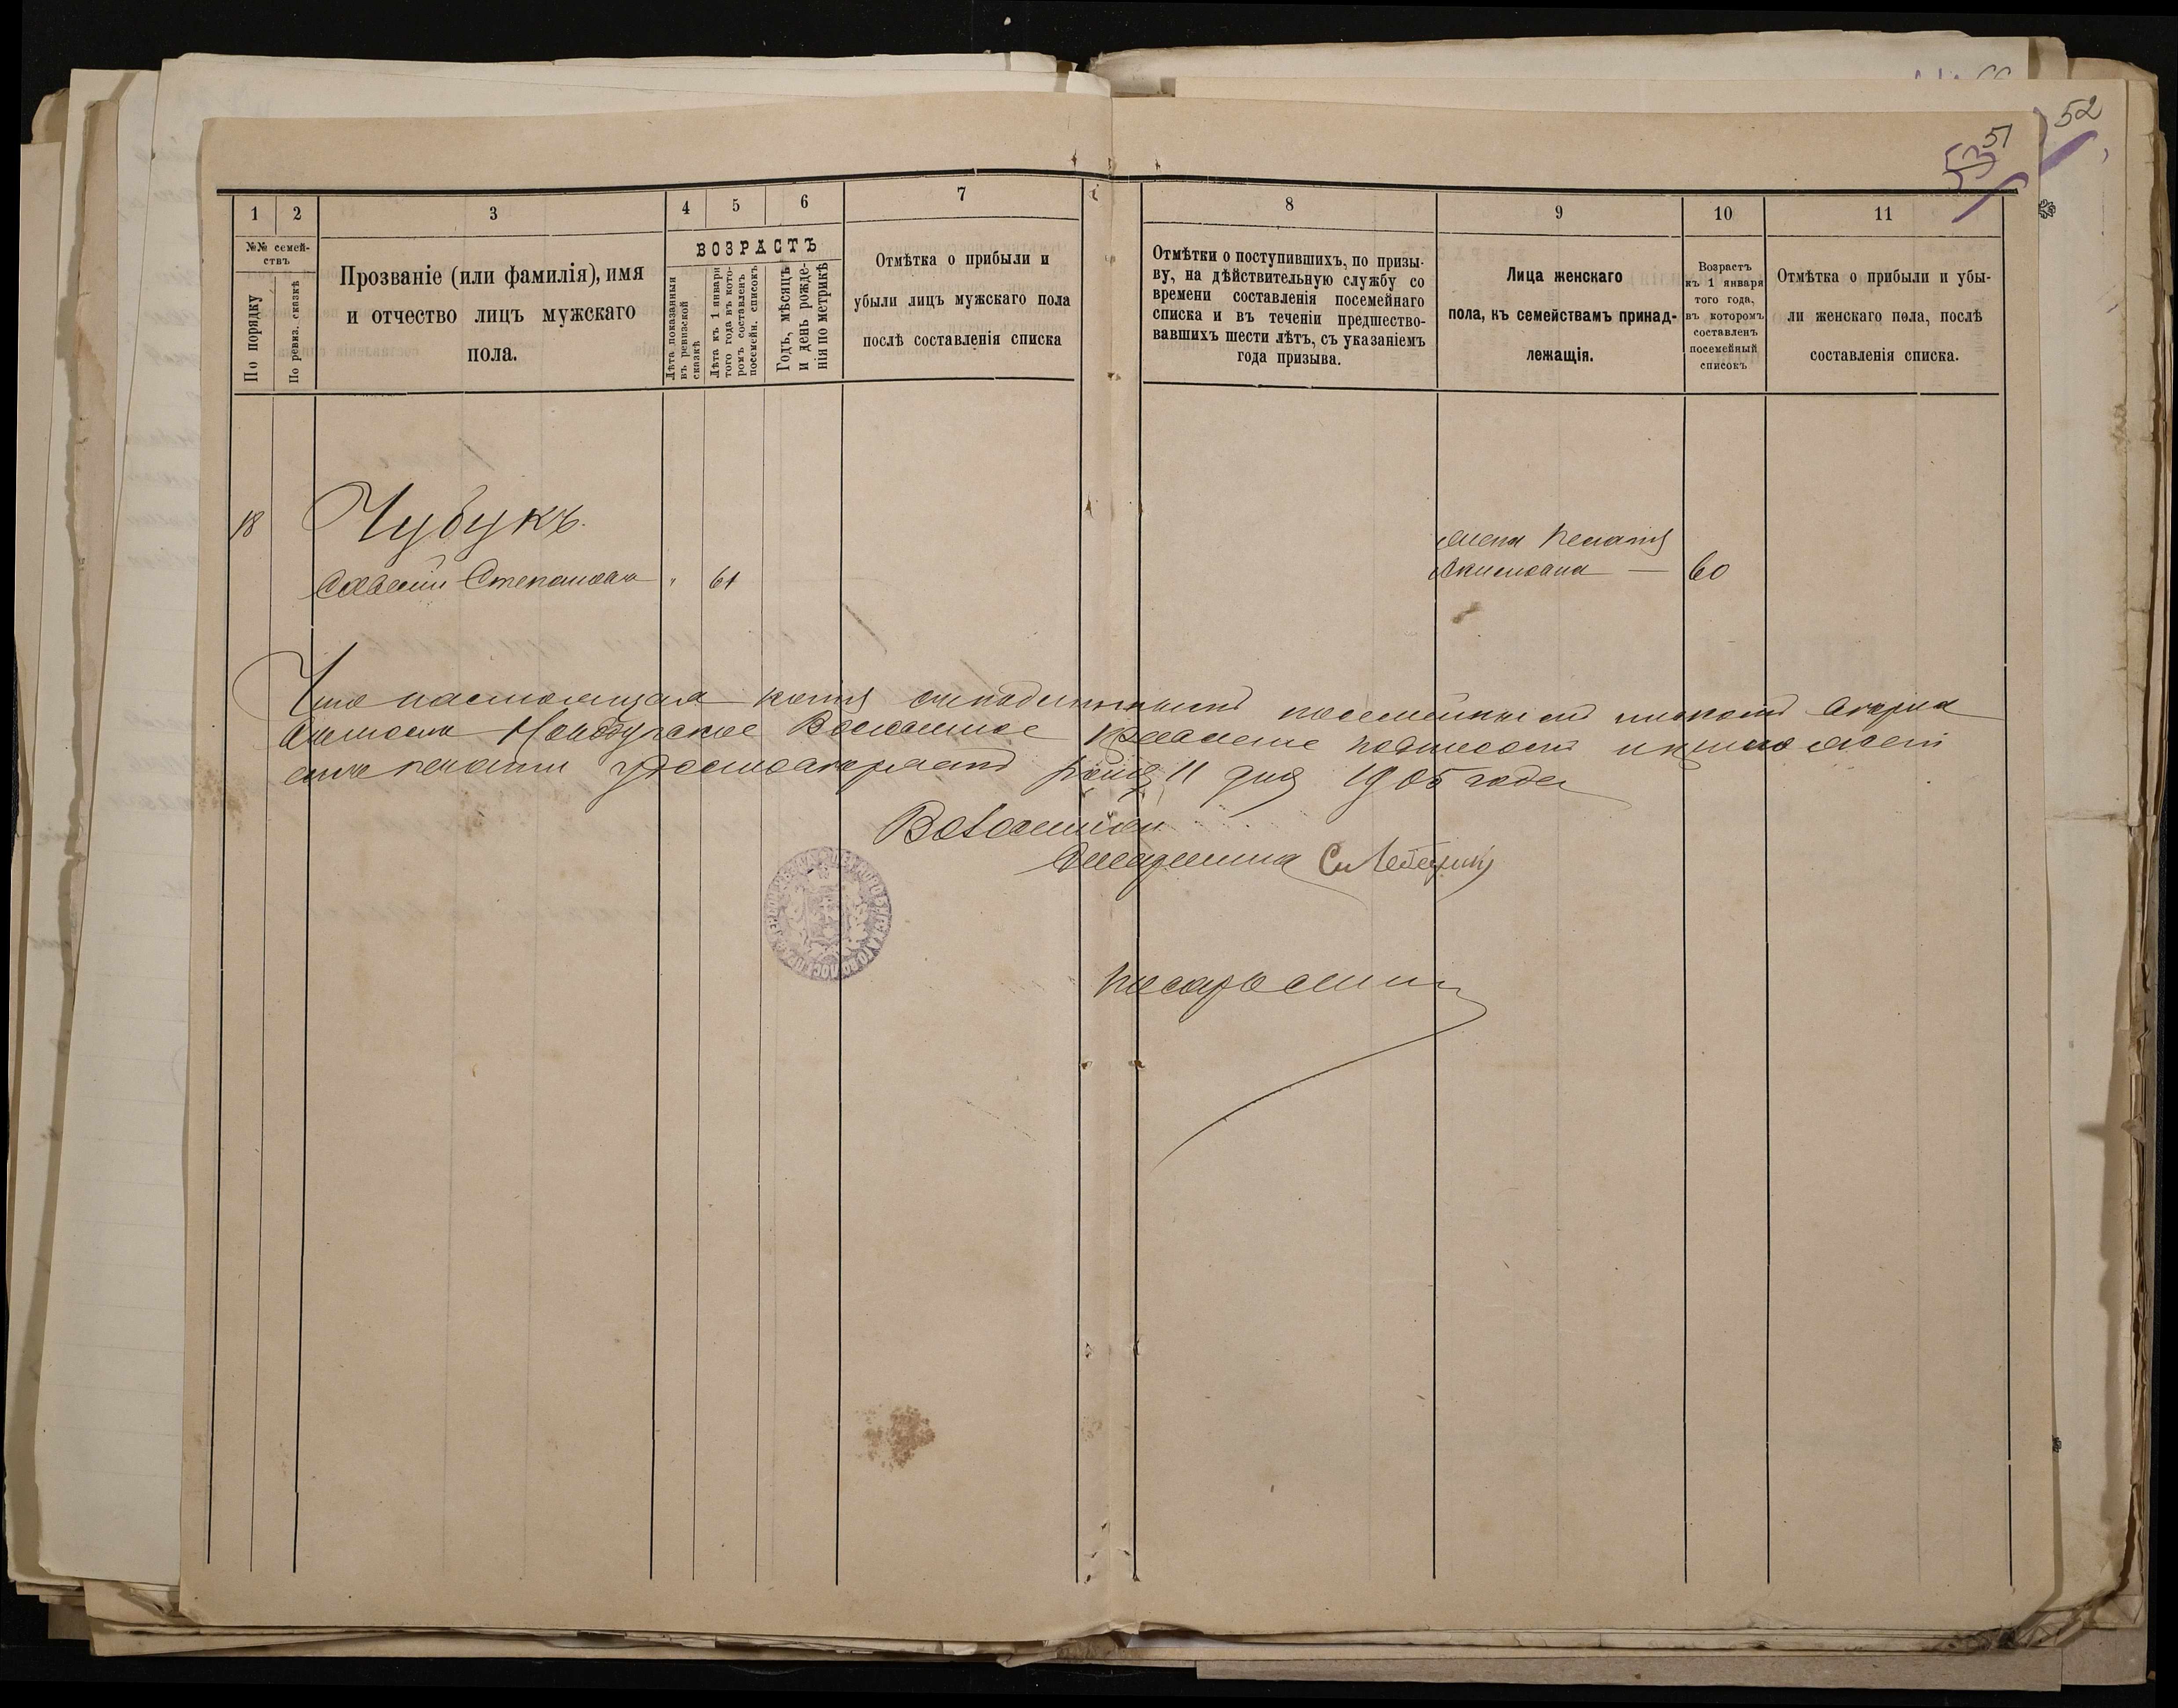 52
51
53
1
2
3
4
5
6
7
8
9
10
11
№№ семей-
ствъ
По порядку
По ревиз. сказкѣ
Прозваніе (или фамилія), имя
и отчество лицъ мужскаго
пола.
ВОЗРАСТЪ
Лѣта показанныя
въ ревизской
сказкѣ
Лѣта къ 1 января
того года въ кото-
ромъ составленъ
посемейн. списокъ
Годъ, мѣсяцъ
и день рожде-
нія по метрикѣ
Отмѣтка о прибыли и
убыли лицъ мужскаго пола
послѣ составленія списка
Отмѣтки о поступившихъ, по призы-
ву, на дѣйствительную службу со
времени составленія посемейнаго
списка и въ теченіи предшество-
вавшихъ шести лѣтъ, съ указаніемъ
года призыва.
Лица женскаго
пола, къ семействамъ принад-
лежащія.
Возрастъ
къ 1 января
того года,
въ которомъ
составленъ
посемейный
списокъ
Отмѣтка о прибыли и убы-
ли женскаго пола, послѣ
составленія списка.
18
Чубукъ.
Степановъ
" 61
жена
Акимовна — 60
Что настоящая копія съ подлиннымъ посемейнымъ спискомъ вѣрна
Волостное Правленіе подписомъ и приложеніемъ
печати удостовѣряетъ Іюня 11 дня 1905 года
Волостной
Старшина
Писарь